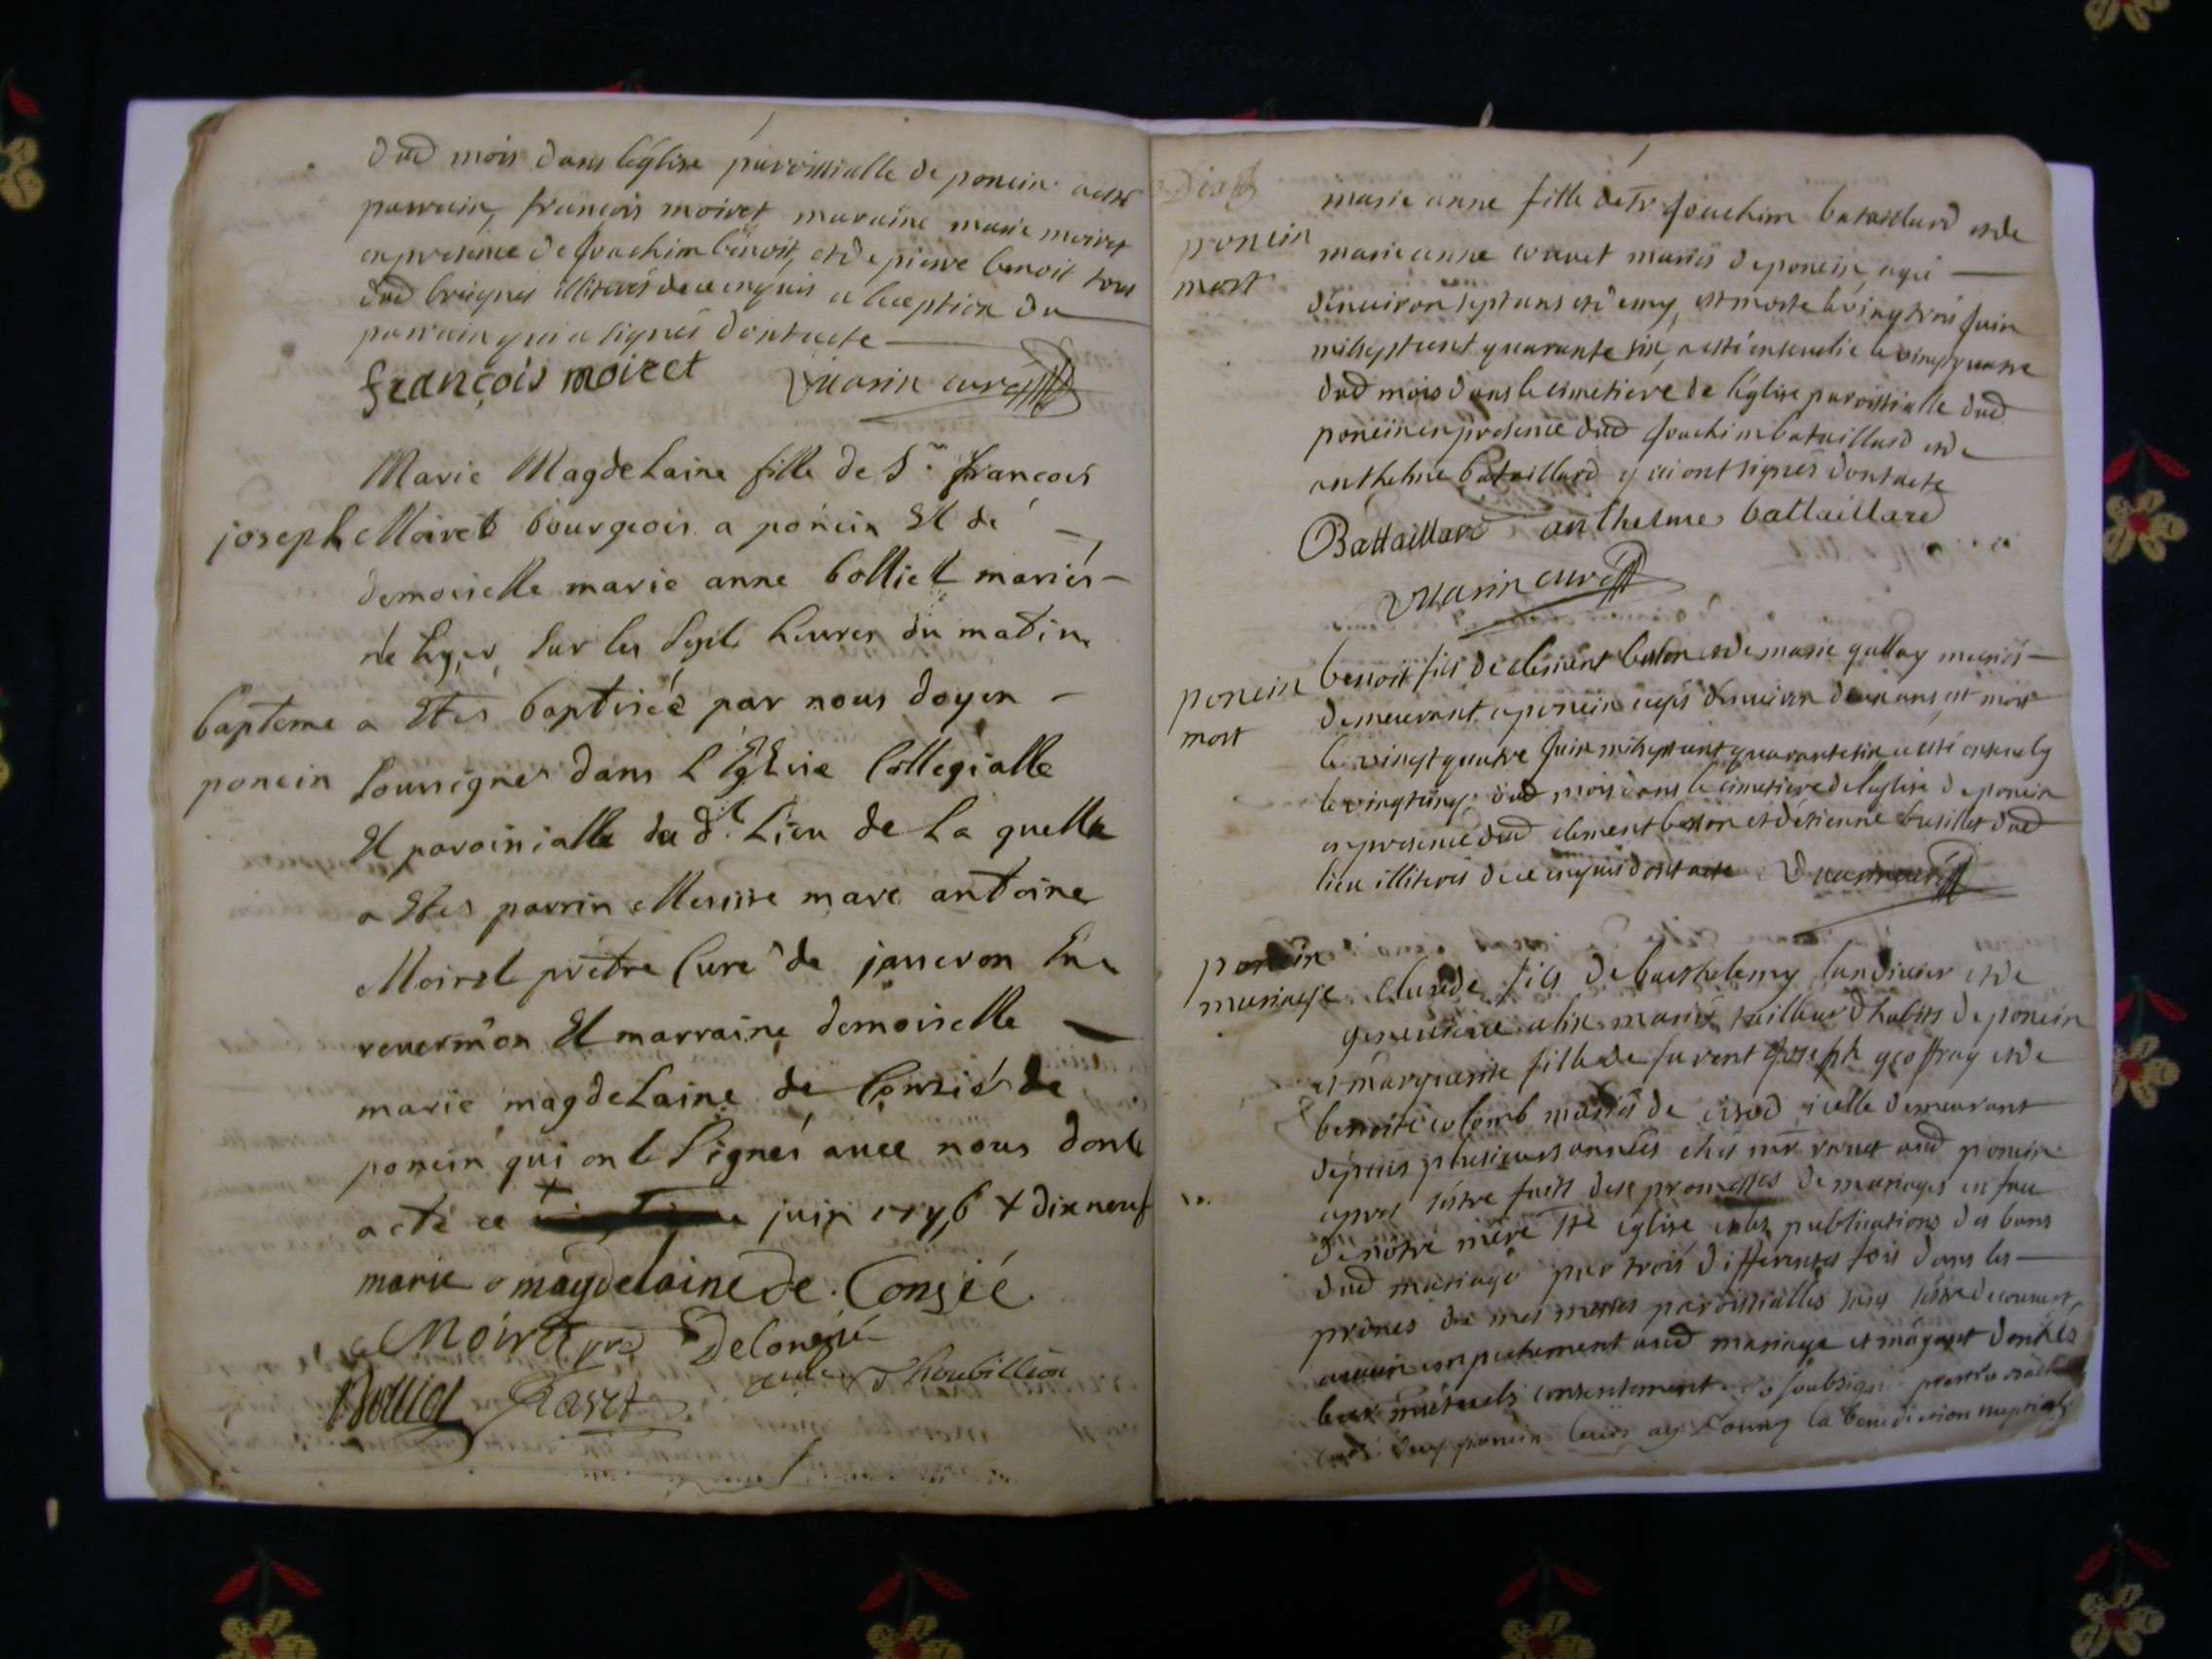 dud mois dans léglise paroissialle de poncin
parrain, françois moiret maraine marie moiret
en presence de Joachim benoit, et de pierre benoit tous
dud illiterés de ce enquis a lexception du
parrain qui a signés dont acte
françois moiret
curé
Marie Magdelaine fille de Sr. francois
joseph Moiret bourgeois a poncin Et de
demoiselle marie anne bolliet mariés
né hyer sur les sept heures du matin
bapteme a Etes baptisée par nous doyen
poncin soussignes dans L'Eglise Collegialle
Et paroissialle du dt. Lieu de La quelle
a Etes parrin Messire marc antoine
Moiret prètre Curé de jasseron En
revermon Et marraine demoiselle
marie magdelaine de Conzié de
poncin qui ont signés avec nous dont
acte ce juin 1746 + dix neuf
marie magdelaine de Conzié
Moiret De Conzié
Bolliet Ravet
poncin
mort
marie anne fille de Joachim bataillard et de
marie anne mariés de poncin, agé
denuiron sept ans et demy, est morte le vingt trois Juin
mil sept cent quarante six, a esté ensevelie le vingt quatre
dud mois dans le cimetiere de léglise paroissialle dud
poncin en presence dud Joachim bataillard et de
anthelme bataillard qui ont signés dont acte
Battaillard anthelme battaillard
curé
poncin
mort
benoit fils de clement et de marie mariés
demeurant a poncin agés denuiron deux ans, est mort
le vingt quatre Juin mil sept cent quarante six a esté ensevely
le vingt cinq dud mois dans le cimetiere de léglise de poncin
en presence dud clement et détienne dud
lieu illiterés de ce enquis dont acte
poncin
mariage
Claude fils de barthelemy et de
mariés tailleur dhabits de poncin
et marguerite fille de Joseph geoffray et de
benoite colomb mariés de icelle demeurant
depuis plusieurs années chés aud poncin
apres sestre faits des promesses de mariages en face
de notre mere Ste église et les publications des bans
dud mariage par trois differentes fois dans les
prônes de mes messes paroissialles sans sestre decouvert
aucun empechement aud mariage et mayant donnés
leur mutuels consentement Je soubsigné
curé dud poncin leurs ay donné la benediction nuptiale